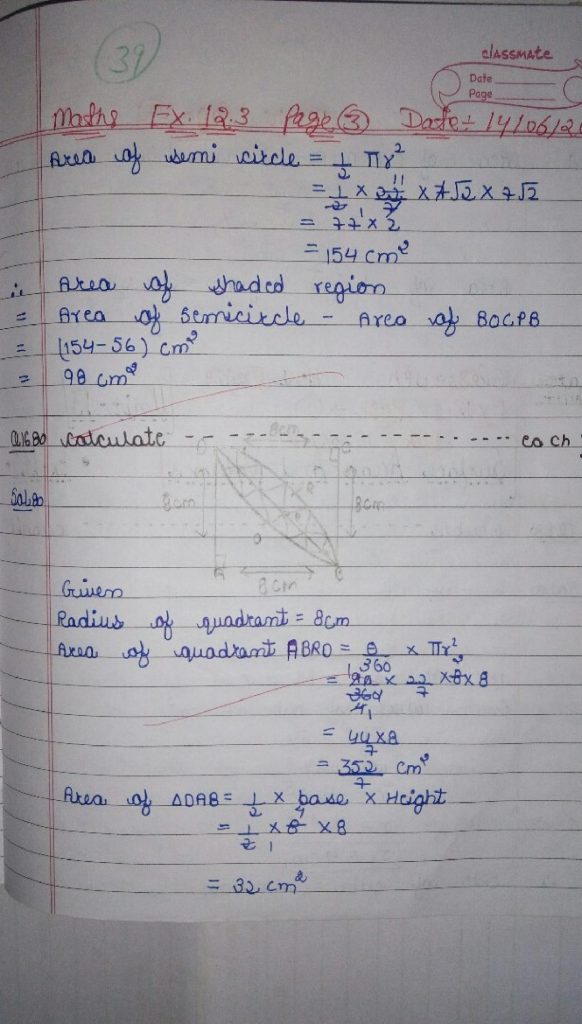 39
classmate
Date
Page
Maths Ex. 12.3 Page ③ Date:- 14/06/2
Area of semi circle = 1/2 πr²
= 1/2 × 22/7 × 7√2 × 7√2
11
= 77 × 2
= 154 cm²
∴ Area of shaded region
= Area of semicircle - Area of BOCPB
= (154-56) cm²
= 98 cm²
Q16 calculate - - - - - - - - - - - - - - - - each
8cm
Sol
8cm
8cm
8cm
Given
Radius of quadrant = 8cm
Area of quadrant ABRD = θ/360 × πr²
= 90/360 × 22/7 × 8 × 8
1
2
4
1
= 44×8/7
= 352/7 cm²
Area of ΔDAB = 1/2 × base × Height
= 1/2 × 8 × 8
4
1
= 32 cm²